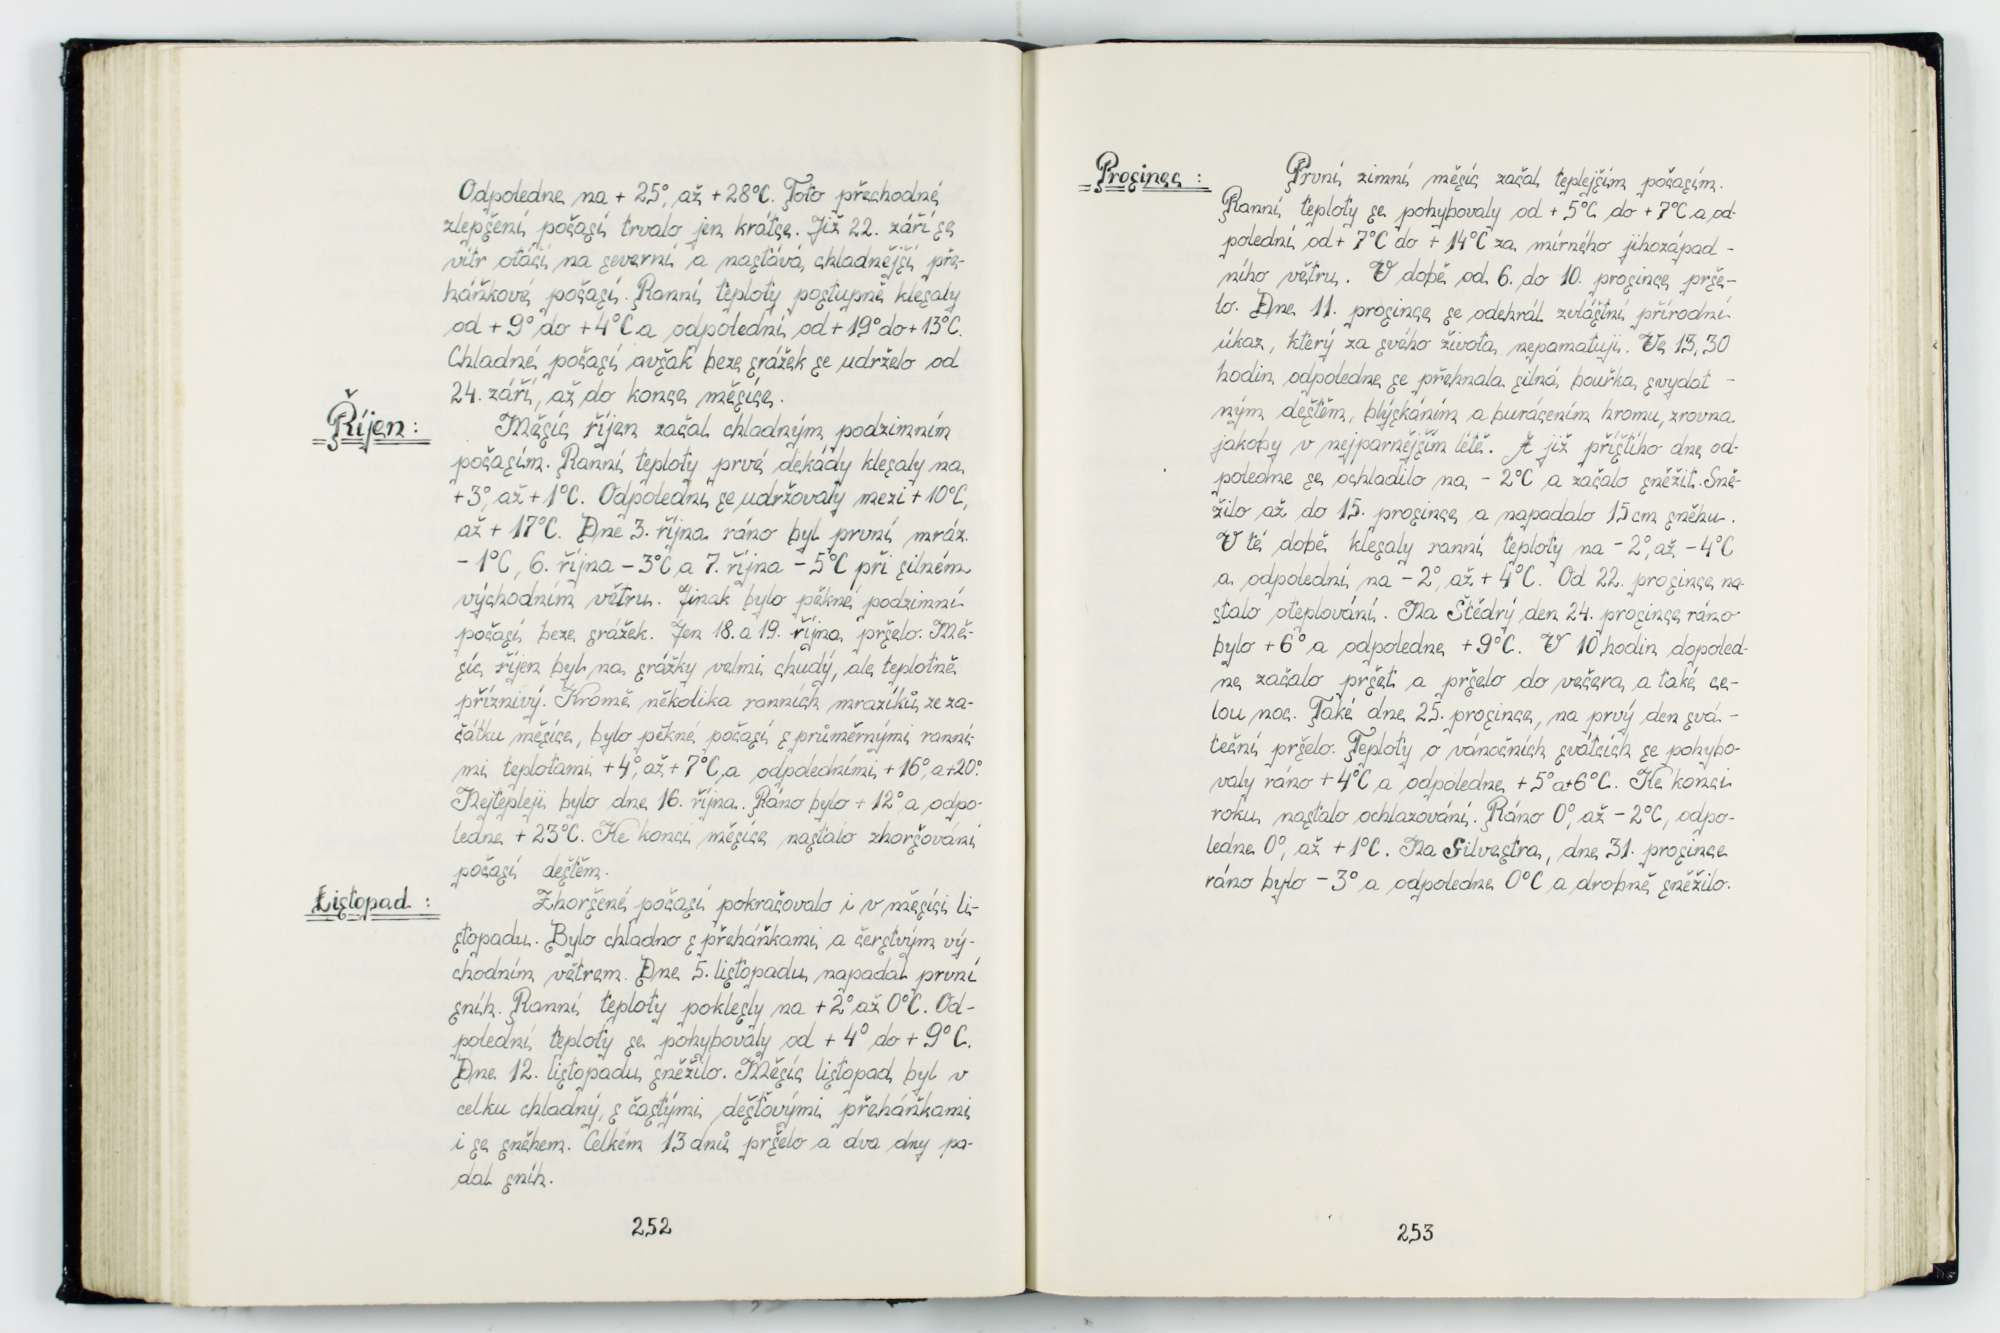 Odpoledne na + 25°, až + 28°C. Toto přechodné
zlepšení počasí trvalo jen krátce. Již 22. září se
vítr otáčí na severní a nastává chladnější pře-
háňkové počasí. Ranní teploty postupně klesaly
od + 9° do + 4°C a odpolední od + 19° do + 13°C.
Chladné počasí avšak beze srážek se udrželo od
24. září, až do konce měsíce.
Říjen :
Měsíc říjen začal chladným podzimním
počasím. Ranní teploty prvé dekády klesaly na
+ 3°, až + 1°C. Odpolední se udržovaly mezi + 10°C,
až + 17°C. Dne 3. října ráno byl první mráz
- 1°C, 6. října - 3°C a 7. října - 5°C při silném
východním větru. Jinak bylo pěkné podzimní
počasí beze srážek. Jen 18. a 19. října pršelo. Mě-
síc říjen byl na srážky velmi chudý, ale teplotně
příznivý. Kromě několika ranních mrazíků ze za-
čátku měsíce, bylo pěkné počasí s průměrnými ranní-
mi teplotami + 4°, až + 7°C, a odpoledními + 16°, a + 20°.
Nejtepleji bylo dne 16. října. Ráno bylo + 12°, a odpo-
ledne + 23°C. Ke konci měsíce nastalo zhoršování
počasí deštěm.
Listopad :
Zhoršené počasí pokračovalo i v měsíci li-
stopadu. Bylo chladno s přeháňkami a čerstvým vý-
chodním větrem. Dne 5. listopadu napadal první
sníh. Ranní teploty poklesly na + 2° až 0°C. Od-
polední teploty se pohybovaly od + 4° do + 9°C.
Dne 12. listopadu sněžilo. Měsíc listopad byl v
celku chladný, s častými dešťovými přeháňkami
i se sněhem. Celkém 13 dnů pršelo a dva dny pa-
dal sníh.
252
Prosinec :
První zimní měsíc začal teplejším počasím.
Ranní teploty se pohybovaly od + 5°C do + 7°C a od-
polední od + 7°C do + 14°C za mírného jihozápad -
ního větru. V době od 6. do 10. prosince prše-
lo. Dne 11. prosince se odehrál zvláštní přírodní
úkaz, který za svého života nepamatuji. Ve 13,30
hodin odpoledne se přehnala silná bouřka svydat -
ným deštěm, blýskáním a burácením hromu, zrovna
jakoby v nejparnějším létě. A již příštího dne od-
poledne se ochladilo na - 2°C a začalo sněžit. Sně-
žilo až do 15. prosince a napadalo 15 cm sněhu.
V té době klesaly ranní teploty na - 2°, až - 4°C
a odpolední na - 2°, až + 4°C. Od 22. prosince na-
stalo oteplování. Na Štědrý den 24. prosince ráno
bylo + 6° a odpoledne + 9°C. V 10 hodin dopoled-
ne začalo pršet a pršelo do večera a také ce-
lou noc. Také dne 25. prosince, na prvý den svá -
teční pršelo. Teploty o vánočních svátcích se pohybo-
valy ráno + 4°C a odpoledne + 5° a + 6°C. Ke konci
roku nastalo ochlazování. Ráno 0°, až - 2°C, odpo-
ledne 0°, až + 1°C. Na Silvestra, dne 31. prosince
ráno bylo - 3° a odpoledne 0°C a drobně sněžilo.
253